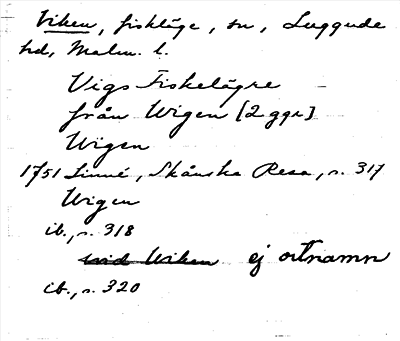 Viken, fiskläge, sn, Luggude
hd, Malm. l.
Vigs Fiskelägre
från Wigen [2 ggr]
Wigen
1751 Linné, Skånska Resa, s. 317
Wigen
ib., s. 318
vid Wiken ej ortnamn
ib., s. 320